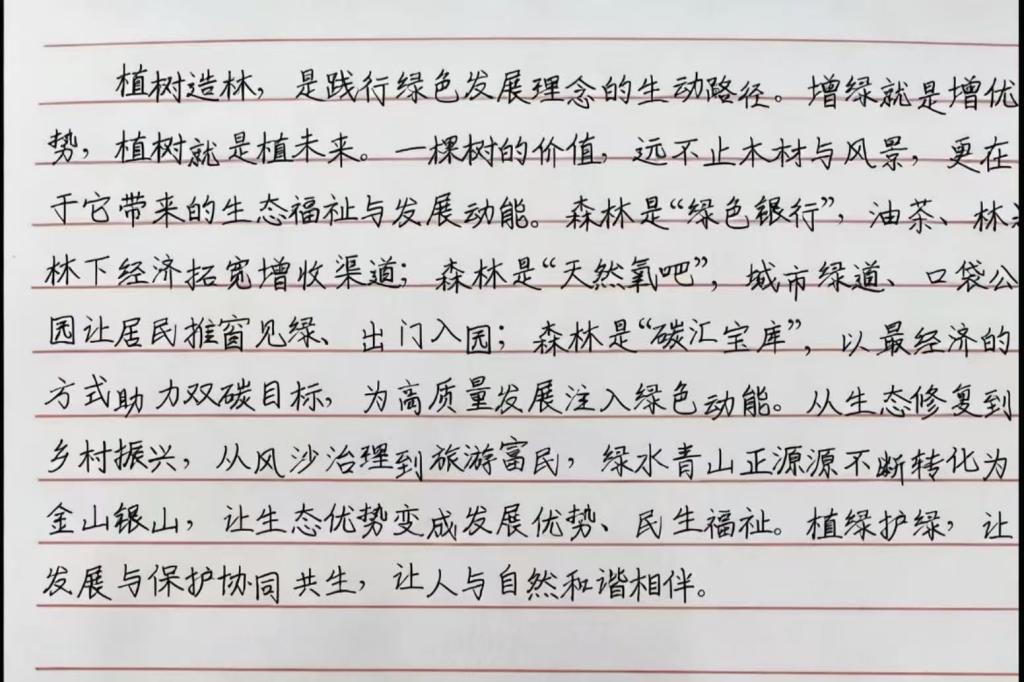 植树造林，是践行绿色发展理念的生动路径。增绿就是增优
势，植树就是植未来。一棵树的价值，远不止木材与风景，更在
于它带来的生态福祉与发展动能。森林是“绿色银行”，油茶、林
林下经济拓宽增收渠道；森林是“天然氧吧”，城市绿道、口袋公
园让居民推窗见绿、出门入园；森林是“碳汇宝库”，以最经济的
方式助力双碳目标，为高质量发展注入绿色动能。从生态修复到
乡村振兴，从风沙治理到旅游富民，绿水青山正源源不断转化为
金山银山，让生态优势变成发展优势、民生福祉。植绿护绿，让
发展与保护协同共生，让人与自然和谐相伴。